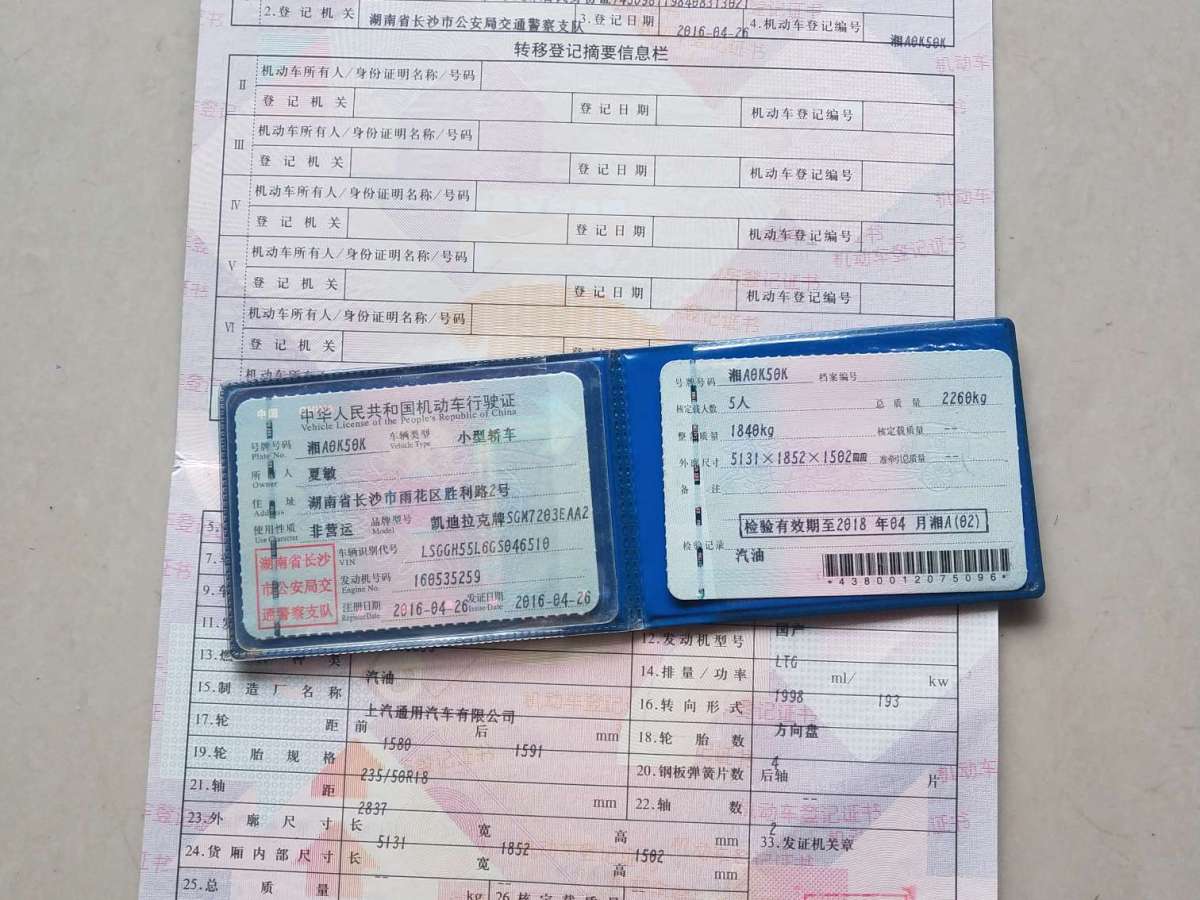 2.登记机关 湖南省长沙市公安局交通警察支队 3.登记日期 2016-04-26 4.机动车登记编号 湘A0K50K
转移登记摘要信息栏
II 机动车所有人/身份证明名称/号码
登记机关 登记日期 机动车登记编号
III 机动车所有人/身份证明名称/号码
登记机关 登记日期 机动车登记编号
IV 机动车所有人/身份证明名称/号码
登记机关 登记日期 机动车登记编号
V 机动车所有人/身份证明名称/号码
登记机关 登记日期 机动车登记编号
VI 机动车所有人/身份证明名称/号码
登记机关
中国 中华人民共和国机动车行驶证
Vehicle License of the People's Republic of China
号牌号码 湘A0K50K 车辆类型 小型轿车
Plate No. Vehicle Type
所有人 夏敏
Owner
住址 湖南省长沙市雨花区胜利路2号
Address
使用性质 非营运 品牌型号 凯迪拉克牌SGM7203EAA2
Use Character Model
湖南省长沙
市公安局交
通警察支队
车辆识别代号 LSGGH55L6GS046510
VIN
发动机号码 160535259
Engine No.
注册日期 2016-04-26 发证日期 2016-04-26
Register Date Issue Date
号牌号码 湘A0K50K 档案编号
核定载人数 5人 总质量 2260kg
整备质量 1840kg 核定载质量 --
外廓尺寸 5131×1852×1502mm 准牵引总质量 --
备注
检验有效期至2018 年04 月湘A(02)
检验记录 汽油
*4380012075096*
12.发动机型号 国产
LTG
汽油 14.排量/功率 1998 ml/ 193 kw
15.制造厂名称 上汽通用汽车有限公司 16.转向形式 方向盘
17.轮距 前 1580 后 1591 mm 18.轮胎数 4
19.轮胎规格 235/50R18 20.钢板弹簧片数 后轴 -- 片
21.轴距 2837 mm 22.轴数 2
23.外廓尺寸 长 5131 宽 1852 高 1502 mm 33.发证机关章
24.货厢内部尺寸 长 -- 宽 -- 高 -- mm
25.总质量 kg